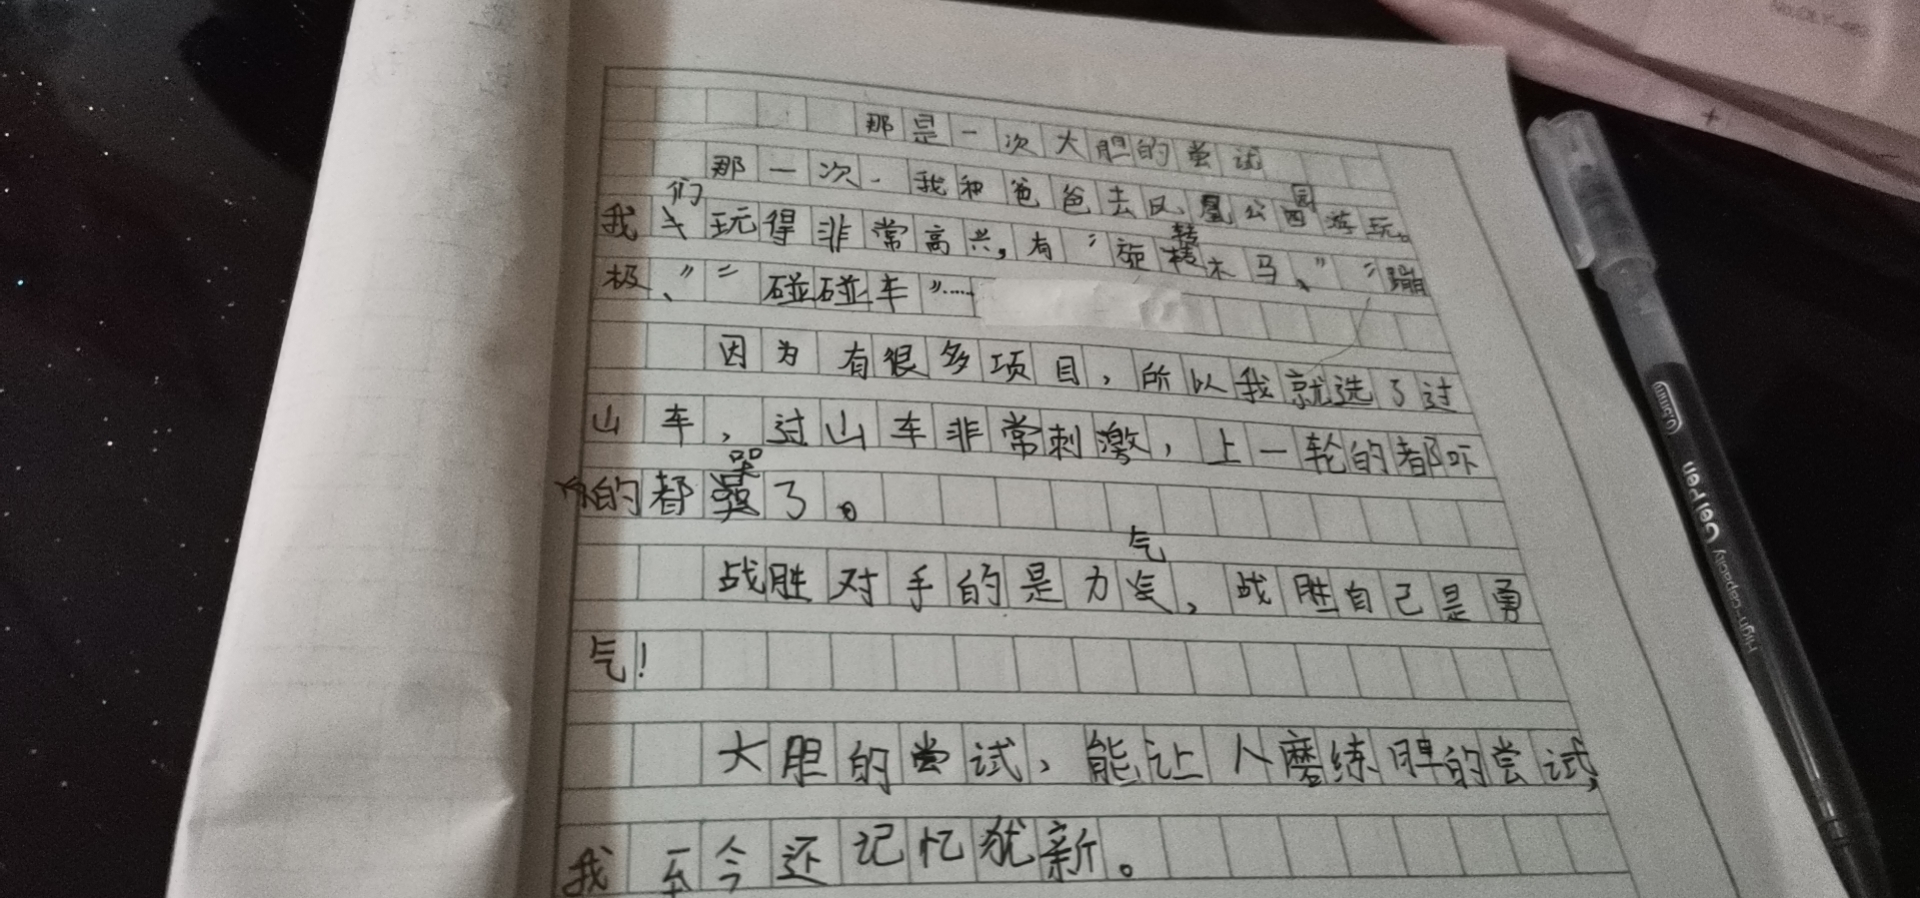 那是一次大胆的尝试
那一次.我和爸爸去凤凰公园游玩。
我们玩得非常高兴,有“旋转木马、”“蹦
极、”“碰碰车”……
因为有很多项目,所以我就选了过
山车,过山车非常刺激,上一轮的都吓
的都哭了。
战胜对手的是力气,战胜自己是勇
气!
大胆的尝试,能让人磨练胆的尝试,
我至今还记忆犹新。
0.5mm
Gel Pen
High-capacity